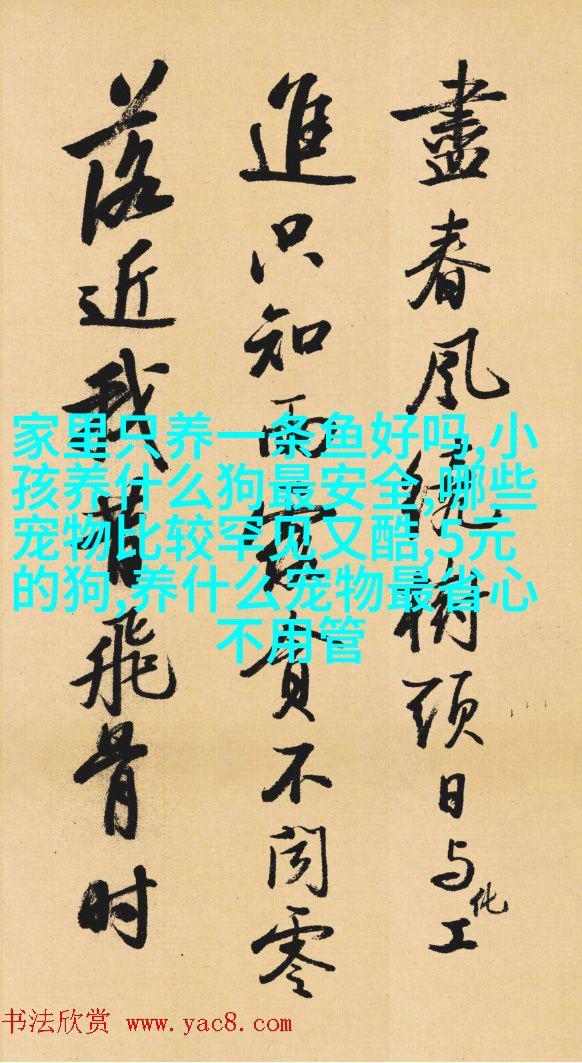 盡春風繞樹頭日与化工
進只知雨露貪不聞零
落近我昔飛骨时
家里只养一条鱼好吗,小
孩养什么狗最安全,哪些
宠物比较罕见又酷,5元
的狗,养什么宠物最省心
不用管
书法欣赏 www.yac8.com